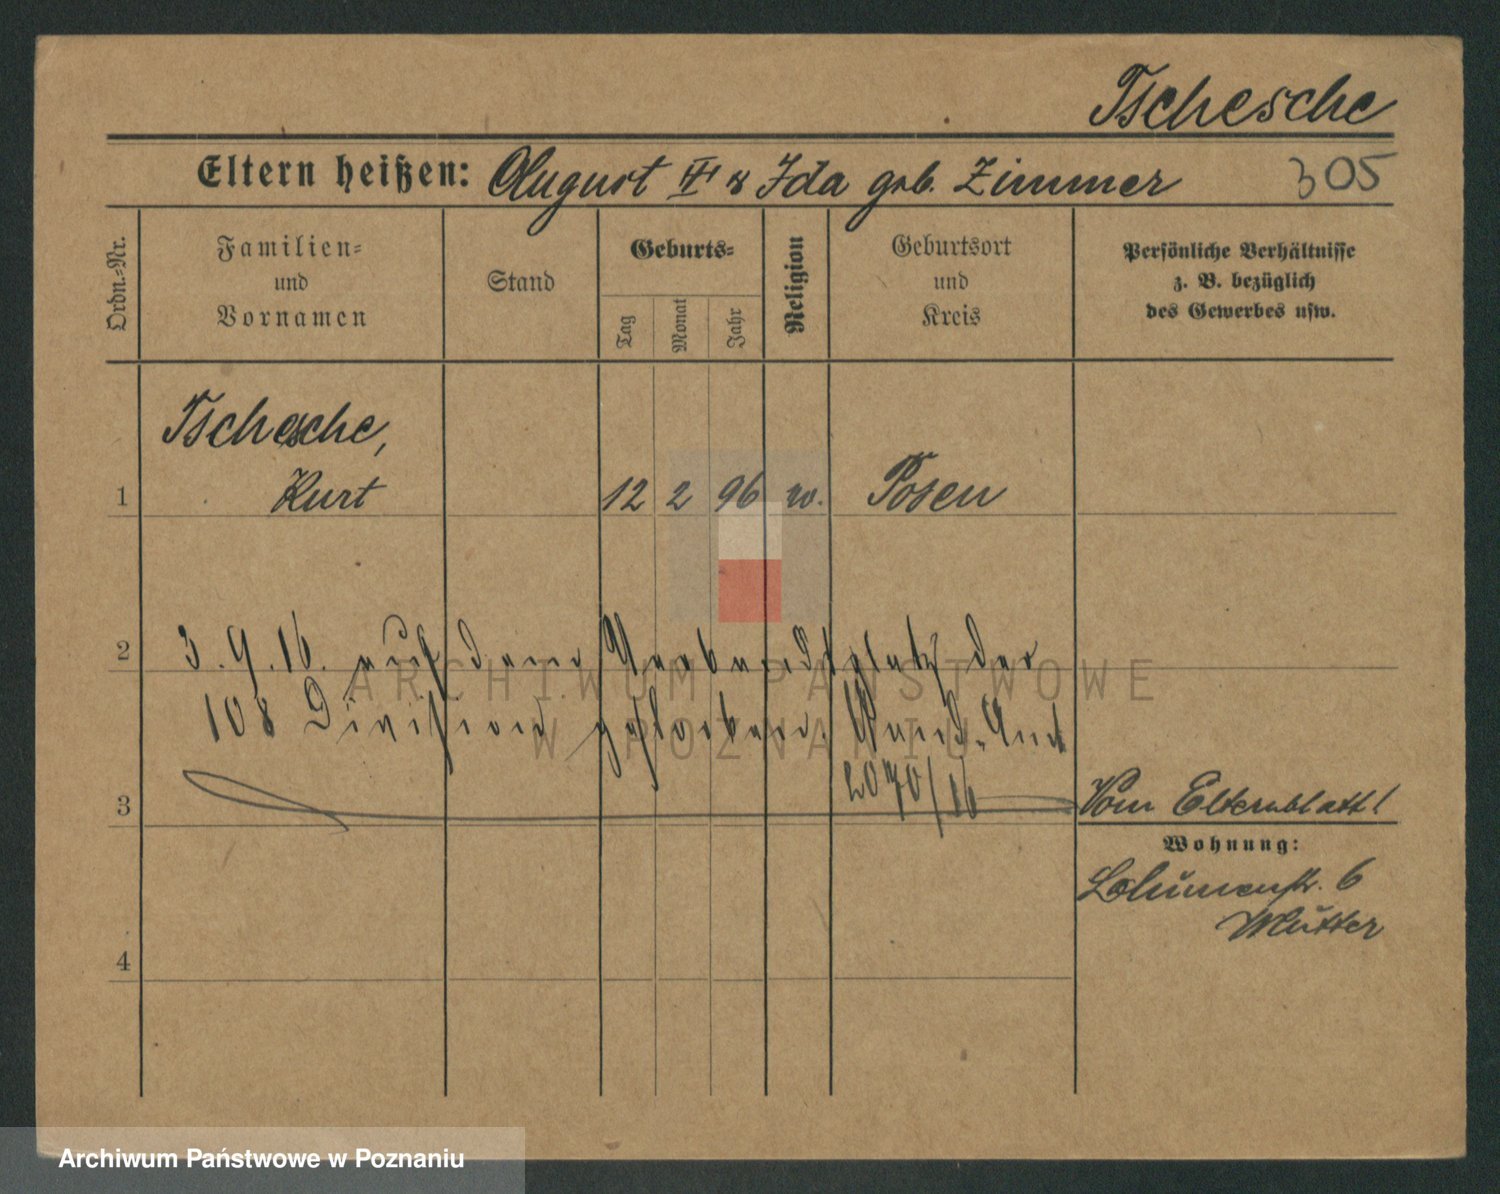 Tschesche
Eltern heißen: August III & Ida geb. Zimmer 305
Ordn.-Nr.
Familien-
und
Vornamen
Stand
Geburts-
Tag
Monat
Jahr
Religion
Geburtsort
und
Kreis
Persönliche Verhältnisse
z. B. bezüglich
des Gewerbes usw.
Tschesche,
1 Kurt 12 2 96 w. Posen
2 3.9.16. auf dem Verbandsplatz der
108 Division gestorben.
2070/16
3 Vom Elternblatt!
Wohnung:
Blumenstr. 6
Mutter
4
ARCHIWUM PAŃSTWOWE
W POZNANIU
Archiwum Państwowe w Poznaniu